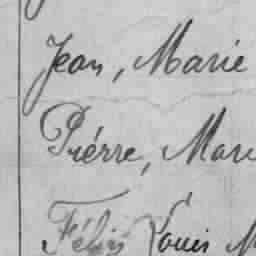 Jean, Marie
Piérre, Mar
Félix Louis M